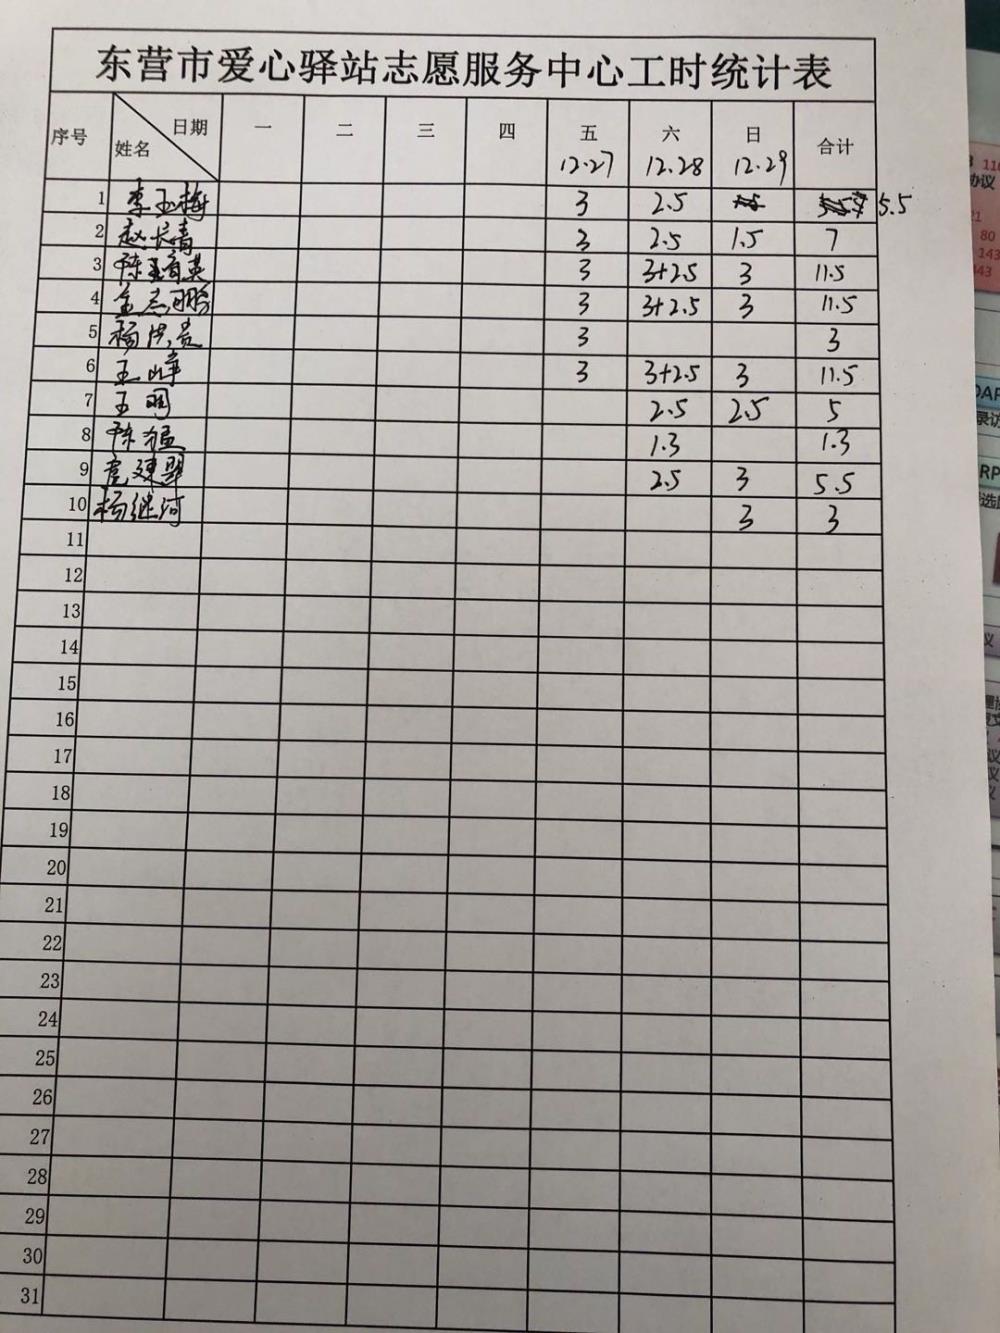 东营市爱心驿站志愿服务中心工时统计表
序号 日期 姓名 一 二 三 四 五 六 日 合计
12.27 12.28 12.29
1 李玉梅 3 2.5 5.5
2 赵长青 3 2.5 1.5 7
3 陈育英 3 3+2.5 3 11.5
4 金志鹏 3 3+2.5 3 11.5
5 杨洪贵 3 3
6 王峰 3 3+2.5 3 11.5
7 王明 2.5 2.5 5
8 陈猛 1.3 1.3
9 2.5 3 5.5
10 杨继河 3 3
11
12
13
14
15
16
17
18
19
20
21
22
23
24
25
26
27
28
29
30
31
协议
80
143